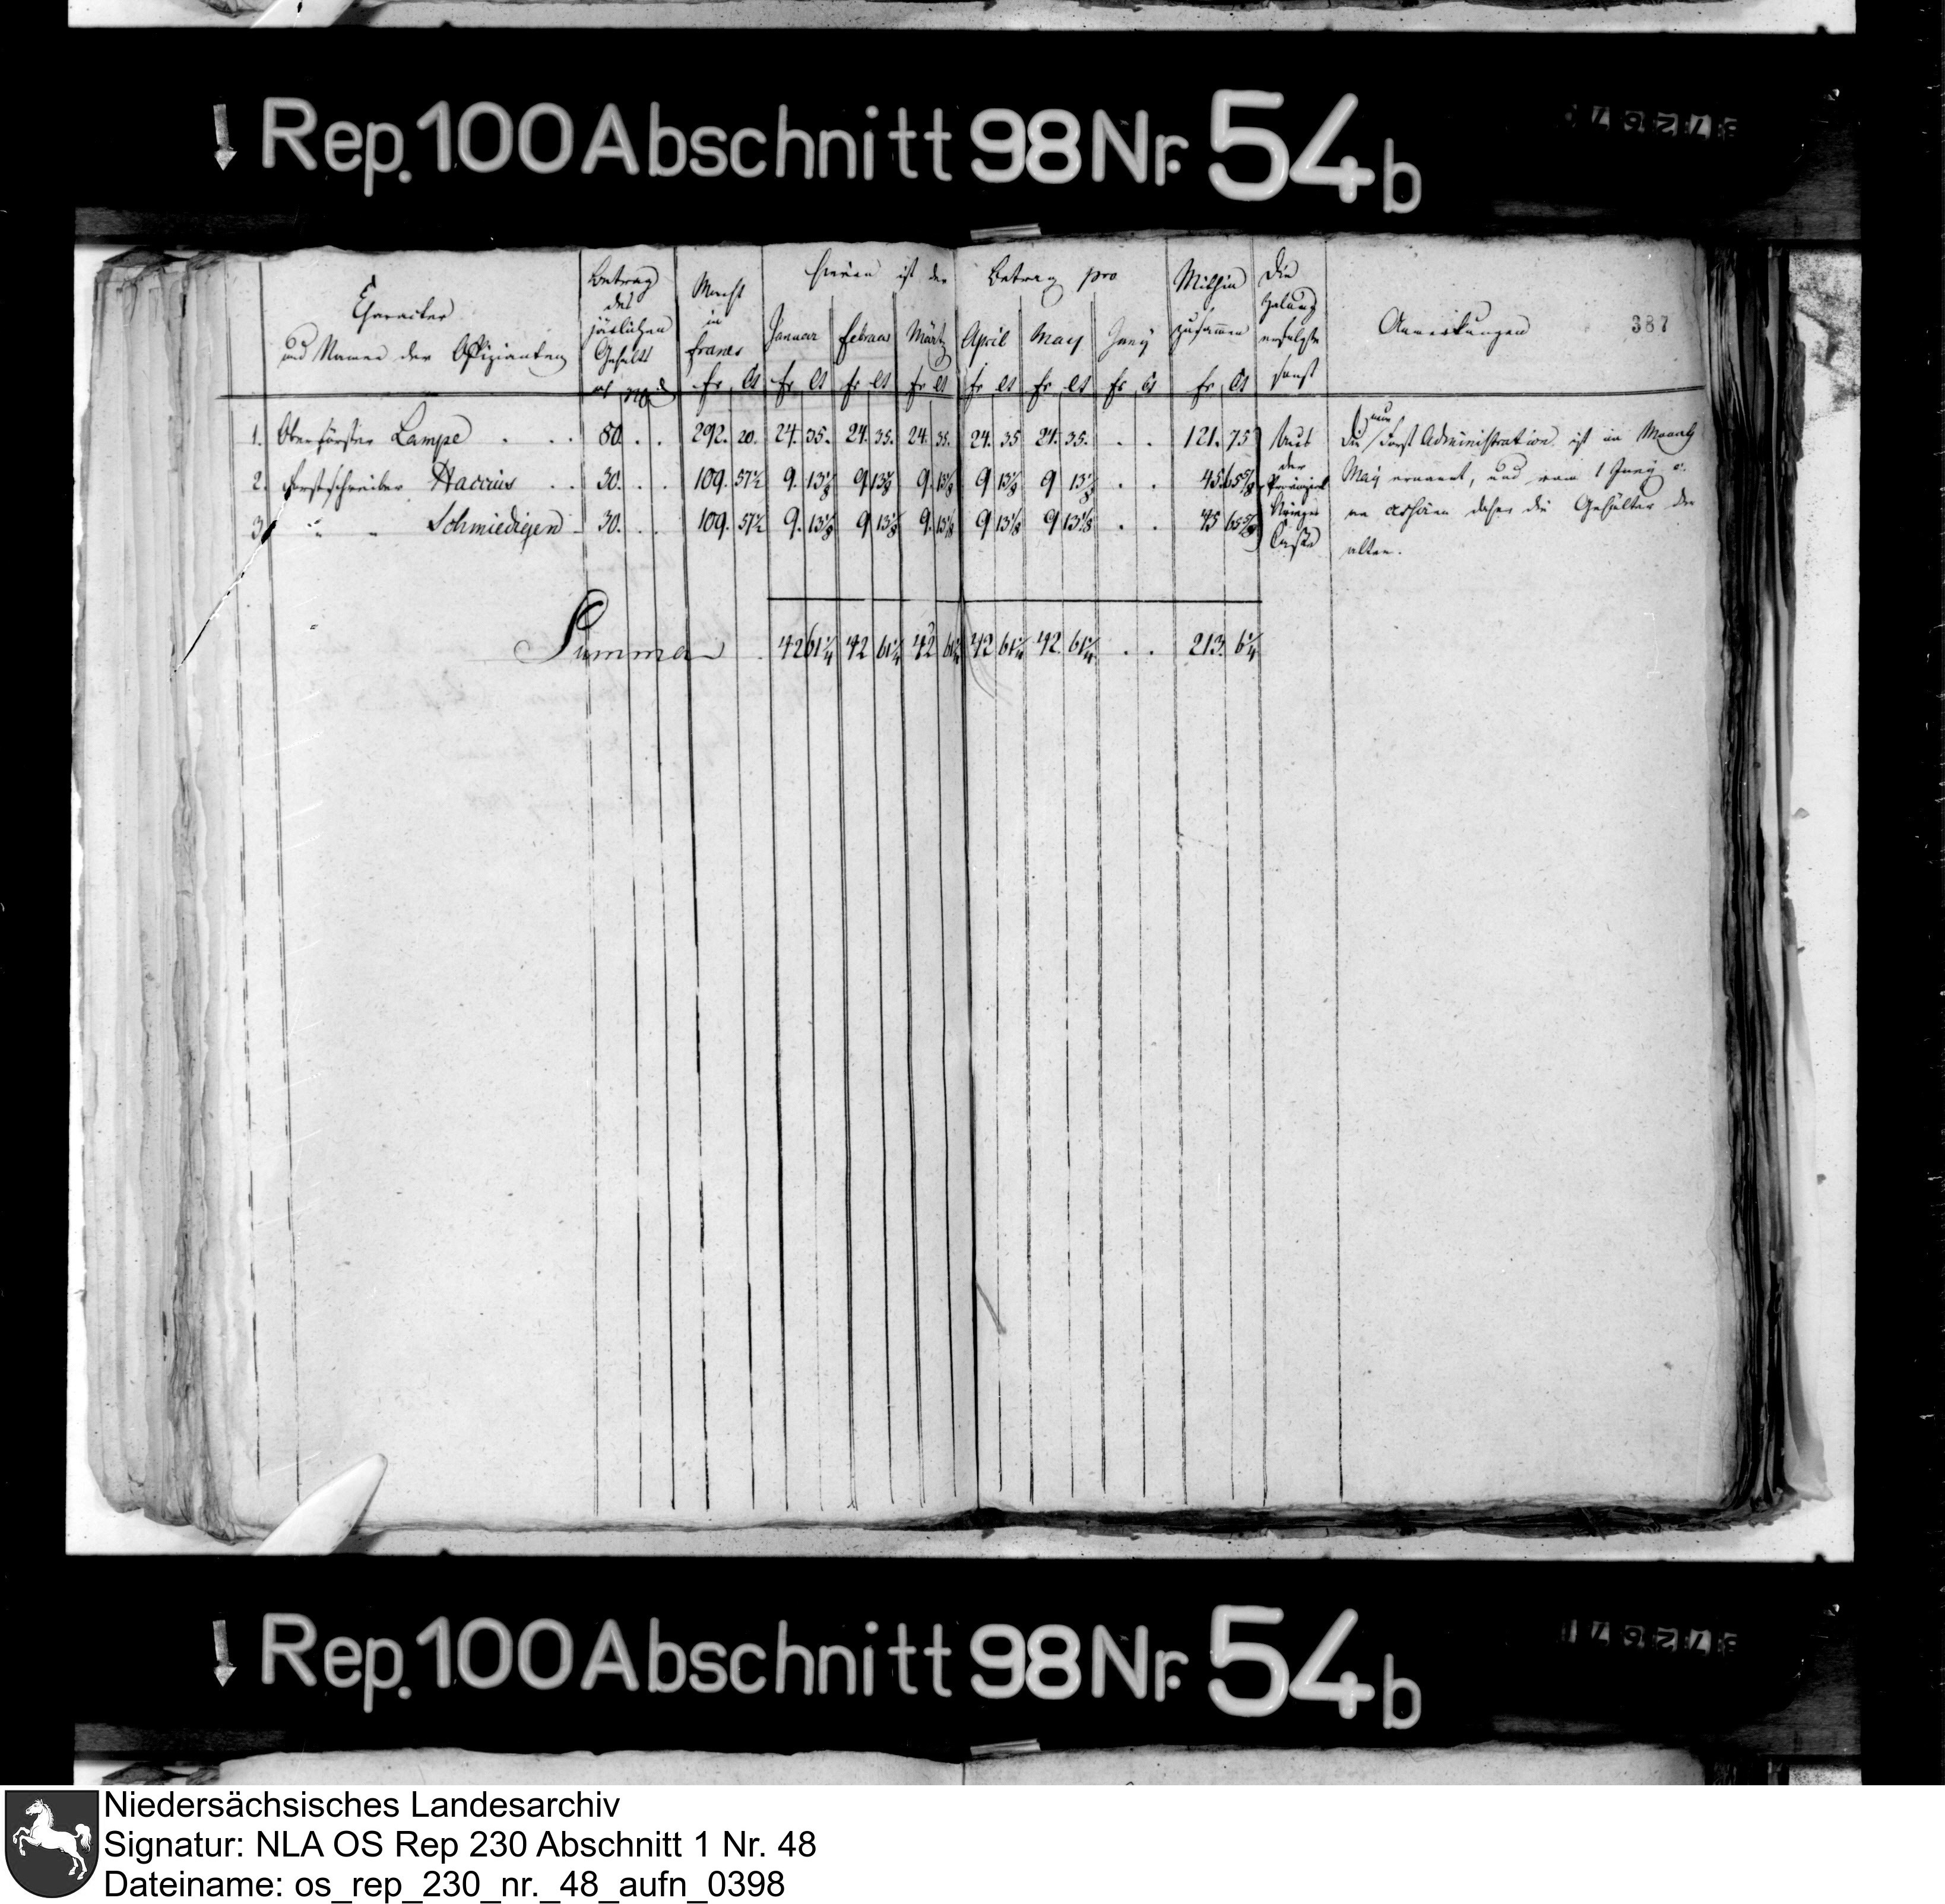 Rep. 100 Abschnitt 98 Nr. 54b
387
Character
und Namen der Offizianten
Betrag
des
järlichen
Gehalts
Macht
in
francs
hievon ist der Betrag pro
Januar Februar März April May Juny
Mithin
zusammen
Die
Zalung
erfolgte
sonst
Anmerkungen
fr Ct fr Ct fr Ct fr Ct fr Ct fr Ct fr Ct fr Ct
1. Oberförster Lampe . . . 80. . . 292. 20. 24. 35. 24. 35. 24. 35. 24. 35 24. 35. . . 121. 75
2. Forstschreiber Haccius . . 30. . . 109. 57½ 9. 13⅛ 9 13⅛ 9. 13⅛ 9 13⅛ 9 13⅛ . . 45. 65⅝
3. " " Schmiedigen 30. . . 109. 57½ 9. 13⅛ 9 13⅛ 9. 13⅛ 9 13⅛ 9 13⅛ . . 45 65⅝
aus
der
Provinzial
Krieges
Casse
neue
Die Forst Administration ist im Monath
May ernannt, und vom 1 Juny
daher die Gehälter der
alten.
Summa . 42 61¼ 42 61¼ 42 61¼ 42 61¼ 42 61¼ . . 213. 6¼
Rep. 100 Abschnitt 98 Nr. 54b
Niedersächsisches Landesarchiv
Signatur: NLA OS Rep 230 Abschnitt 1 Nr. 48
Dateiname: os_rep_230_nr._48_aufn_0398